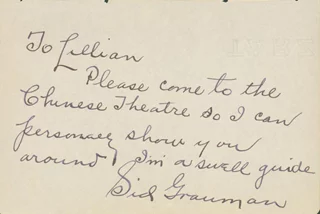 To Lillian
Please come to the
Chinese Theatre so I can
personaly show you
around I'm a swell guide
Sid Grauman